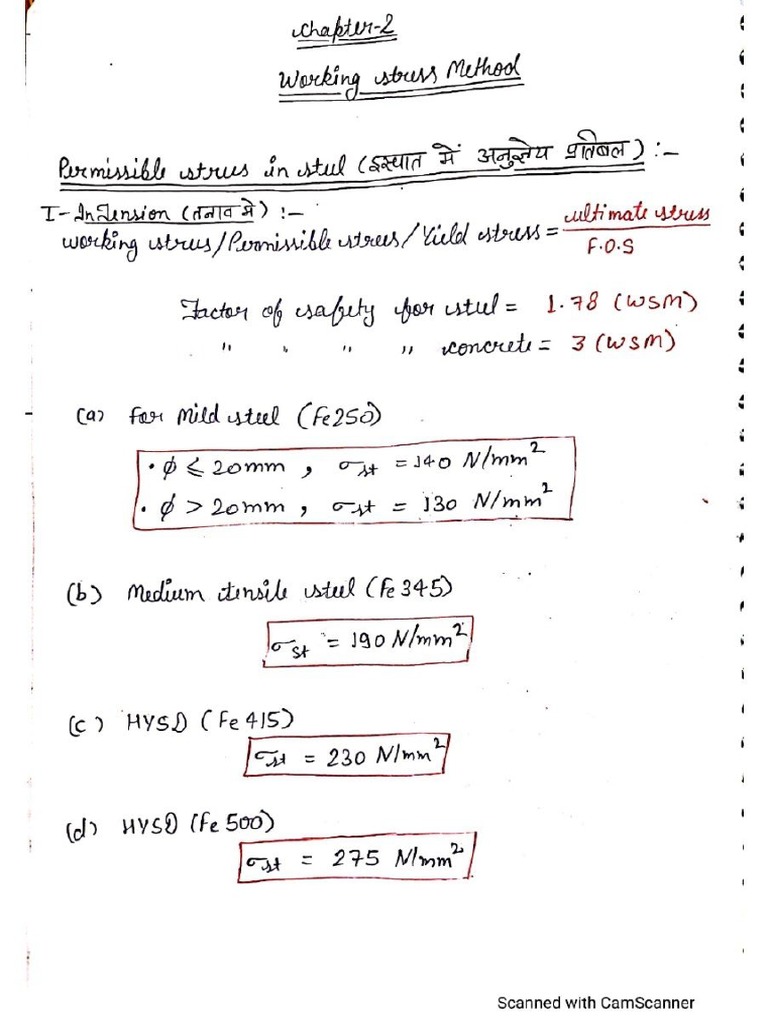 Chapter-2
Working stress Method
Permissible stress in steel (इस्पात में अनुज्ञेय प्रतिबल) :-
I- In Tension (तनाव में) :-
working stress/Permissible stress/Yield stress = ultimate stress / F.O.S
Factor of safety for steel = 1.78 (WSM)
" " " " concrete = 3 (WSM)
(a) For Mild steel (Fe250)
• ϕ ⩽ 20mm , σst = 140 N/mm²
• ϕ > 20mm , σst = 130 N/mm²
(b) Medium tensile steel (Fe 345)
σst = 190 N/mm²
(c) HYSD (Fe 415)
σst = 230 N/mm²
(d) HYSD (Fe 500)
σst = 275 N/mm²
Scanned with CamScanner